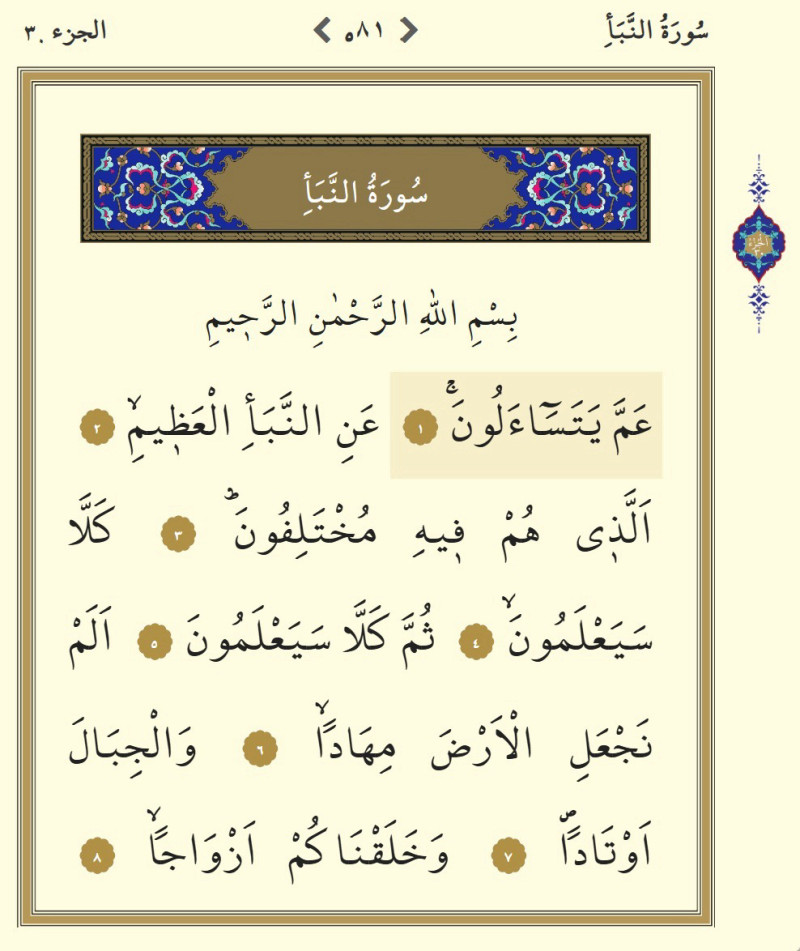 سُورَةُ النَّبَأِ
٥٨١
الجزء ٣٠
سُورَةُ النَّبَأِ
بِسْمِ اللّٰهِ الرَّحْمٰنِ الرَّحٖيمِ
عَمَّ يَتَسَٓاءَلُونَۚ ١ عَنِ النَّبَأِ الْعَظٖيمِۙ ٢
اَلَّذٖى هُمْ فٖيهِ مُخْتَلِفُونَؕ ٣ كَلَّا
سَيَعْلَمُونَۙ ٤ ثُمَّ كَلَّا سَيَعْلَمُونَ ٥ اَلَمْ
نَجْعَلِ الْاَرْضَ مِهَادًاۙ ٦ وَالْجِبَالَ
اَوْتَادًاۖ ٧ وَخَلَقْنَاكُمْ اَزْوَاجًاۙ ٨